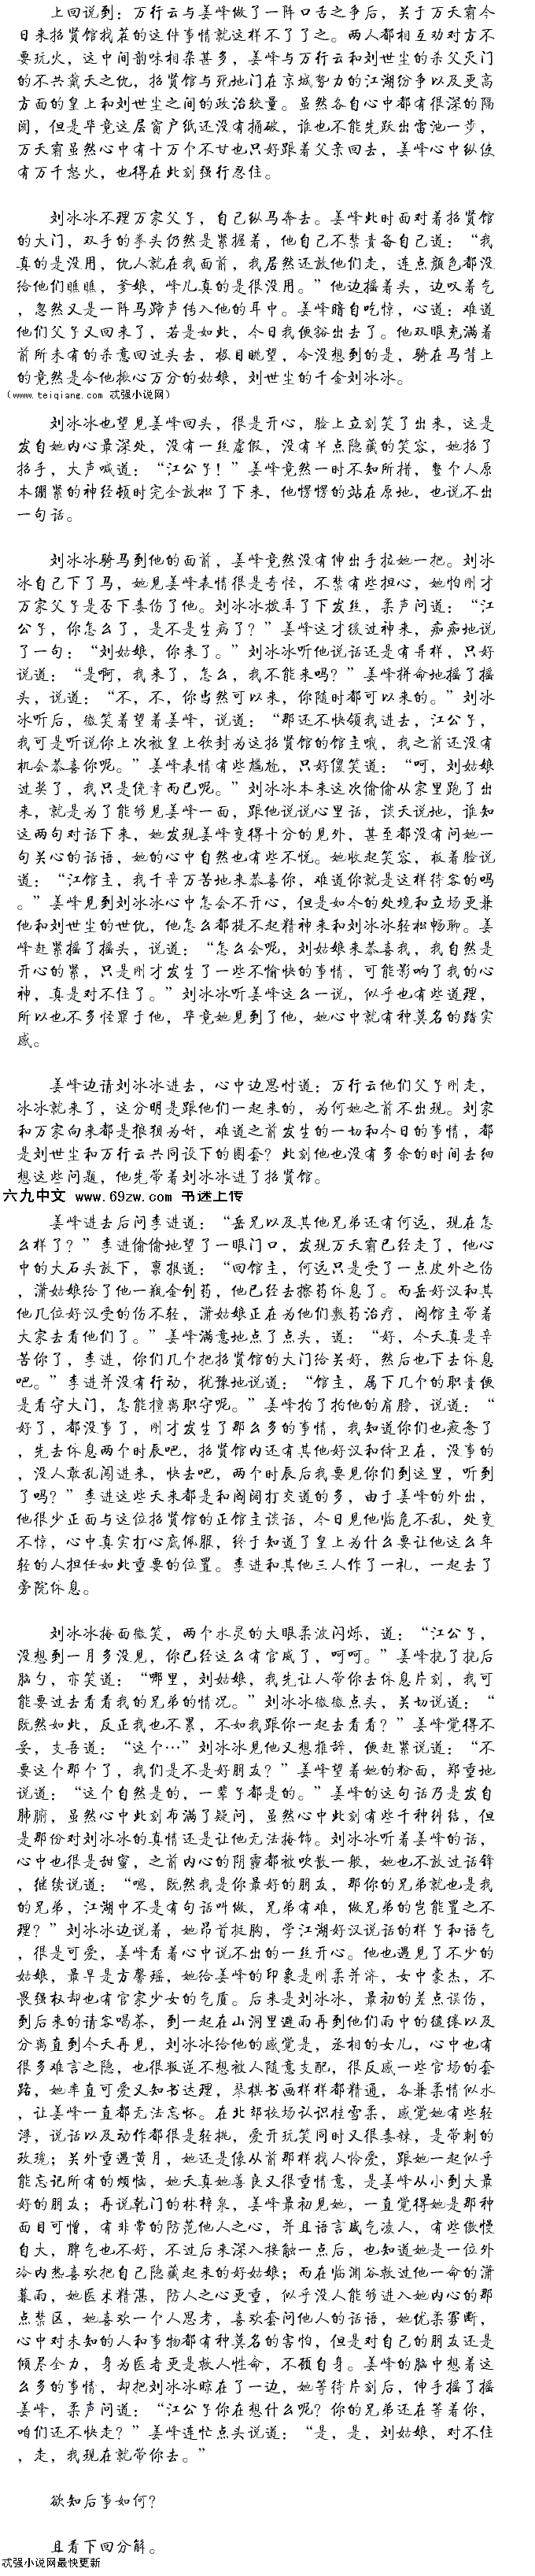 上回说到：万行云与姜峰做了一阵口舌之争后，关于万天霸今
日来招贤馆找茬的这件事情就这样不了了之。两人都相互劝对方不
要玩火，这中间韵味相杂甚多，姜峰与万行云和刘世尘的杀父灭门
的不共戴天之仇，招贤馆与死地门在京城势力的江湖纷争以及更高
方面的皇上和刘世尘之间的政治较量。虽然各自心中都有很深的隔
阂，但是毕竟这层窗户纸还没有捅破，谁也不能先跃出雷池一步，
万天霸虽然心中有十万个不甘也只好跟着父亲回去，姜峰心中纵使
有万千怒火，也得在此刻强行忍住。
刘冰冰不理万家父子，自己纵马奔去。姜峰此时面对着招贤馆
的大门，双手的拳头仍然是紧握着，他自己不禁责备自己道：“我
真的是没用，仇人就在我面前，我居然还放他们走，连点颜色都没
给他们瞧瞧，爹娘，峰儿真的是很没用。”他边摇着头，边叹着气
，忽然又是一阵马蹄声传入他的耳中。姜峰暗自吃惊，心道：难道
他们父子又回来了，若是如此，今日我便豁出去了。他双眼充满着
前所未有的杀意回过头去，极目眺望，令没想到的是，骑在马背上
的竟然是令他揪心万分的姑娘，刘世尘的千金刘冰冰。
（www.teiqiang.com 忒强小说网）
刘冰冰也望见姜峰回头，很是开心，脸上立刻笑了出来，这是
发自她内心最深处，没有一丝虚假，没有半点隐藏的笑容，她招了
招手，大声喊道：“江公子！”姜峰竟然一时不知所措，整个人原
本绷紧的神经顿时完全放松了下来，他愣愣的站在原地，也说不出
一句话。
刘冰冰骑马到他的面前，姜峰竟然没有伸出手拉她一把。刘冰
冰自己下了马，她见姜峰表情很是奇怪，不禁有些担心，她怕刚才
万家父子是否下毒伤了他。刘冰冰拨弄了下发丝，柔声问道：“江
公子，你怎么了，是不是生病了？”姜峰这才缓过神来，痴痴地说
了一句：“刘姑娘，你来了。”刘冰冰听他说话还是有异样，只好
说道：“是啊，我来了，怎么，我不能来吗？”姜峰拼命地摇了摇
头，说道：“不，不，你当然可以来，你随时都可以来的。”刘冰
冰听后，微笑着望着姜峰，说道：“那还不快领我进去，江公子，
我可是听说你上次被皇上钦封为这招贤馆的馆主哦，我之前还没有
机会恭喜你呢。”姜峰表情有些尴尬，只好傻笑道：“呵，刘姑娘
过奖了，我只是侥幸而已呢。”刘冰冰本来这次偷偷从家里跑了出
来，就是为了能够见姜峰一面，跟他说说心里话，谈天说地，谁知
这两句对话下来，她发现姜峰变得十分的见外，甚至都没有问她一
句关心的话语，她的心中自然也有些不悦。她收起笑容，板着脸说
道：“江馆主，我千辛万苦地来恭喜你，难道你就是这样待客的吗
。”姜峰见到刘冰冰心中怎会不开心，但是如今的处境和立场更兼
他和刘世尘的世仇，他怎么都提不起精神来和刘冰冰轻松畅聊。姜
峰赶紧摇了摇头，说道：“怎么会呢，刘姑娘来恭喜我，我自然是
开心的紧，只是刚才发生了一些不愉快的事情，可能影响了我的心
神，真是对不住了。”刘冰冰听姜峰这么一说，似乎也有些道理，
所以也不多怪罪于他，毕竟她见到了他，她心中就有种莫名的踏实
感。
姜峰边请刘冰冰进去，心中边思忖道：万行云他们父子刚走，
冰冰就来了，这分明是跟他们一起来的，为何她之前不出现。刘家
和万家向来都是狼狈为奸，难道之前发生的一切和今日的事情，都
是刘世尘和万行云共同设下的圈套？此刻他也没有多余的时间去细
想这些问题，他先带着刘冰冰进了招贤馆。
六九中文 www.69zw.com 书迷上传
姜峰进去后问李进道：“岳兄以及其他兄弟还有何远，现在怎
么样了？”李进偷偷地望了一眼门口，发现万天霸已经走了，他心中
的大石头放下，禀报道：“回馆主，何远只是受了一点皮外之伤，
潇姑娘给了他一瓶金创药，他已经去擦药休息了。而岳好汉和其
他几位好汉受的伤不轻，潇姑娘正在为他们敷药治疗，阁馆主带着
大家去看他们了。”姜峰满意地点了点头，道：“好，今天真是辛
苦你了，李进，你们几个把招贤馆的大门给关好，然后也下去休息
吧。”李进并没有行动，犹豫地说道：“馆主，属下几个的职责便
是看守大门，怎能擅离职守呢。”姜峰拍了拍他的肩膀，说道：“
好了，都没事了，刚才发生了那么多的事情，我知道你们也疲惫了
，先去休息两个时辰吧，招贤馆内还有其他好汉和侍卫在，没事的
，没人敢乱闯进来，快去吧，两个时辰后我要见你们到这里，听到
了吗？”李进这些天来都是和阁阔打交道的多，由于姜峰的外出，
他很少正面与这位招贤馆的正馆主谈话，今日见他临危不乱，处变
不惊，心中真实打心底佩服，终于知道了皇上为什么要让他这么年
轻的人担任如此重要的位置。李进和其他三人作了一礼，一起去了
旁院休息。
刘冰冰掩面微笑，两个水灵的大眼柔波闪烁，道：“江公子，
没想到一月多没见，你已经这么有官威了，呵呵。”姜峰挠了挠后
脑勺，亦笑道：“哪里，刘姑娘，我先让人带你去休息片刻，我可
能要过去看看我的兄弟的情况。”刘冰冰微微点头，关切说道：“
既然如此，反正我也不累，不如我跟你一起去看看？”姜峰觉得不
妥，支吾道：“这个…”刘冰冰见他又想推辞，便赶紧说道：“不
要这个那个了，我们是不是好朋友？”姜峰望着她的粉面，郑重地
说道：“这个自然是的，一辈子都是的。”姜峰的这句话乃是发自
肺腑，虽然心中此刻布满了疑问，虽然心中此刻有些千种纠结，但
是那份对刘冰冰的真情还是让他无法掩饰。刘冰冰听着姜峰的话，
心中也很是甜蜜，之前内心的阴霾都被吹散一般，她也不放过话锋
，继续说道：“嗯，既然我是你最好的朋友，那你的兄弟就也是我
的兄弟，江湖中不是有句话叫做，兄弟有难，做兄弟的岂能置之不
理？”刘冰冰边说着，她昂首挺胸，学江湖好汉说话的样子和语气
，很是可爱，姜峰看着心中说不出的一丝开心。他也遇见了不少的
姑娘，最早是方馨瑶，她给姜峰的印象是刚柔并济，女中豪杰，不
畏强权却也有官家少女的气质。后来是刘冰冰，最初的差点误伤，
到后来的请客喝茶，到一起在山洞里避雨再到他们雨中的缠绵以及
分离直到今天再见，刘冰冰给他的感觉是，丞相的女儿，心中也有
很多难言之隐，也很叛逆不想被人随意支配，很反感一些官场的套
路，她率直可爱又知书达理，琴棋书画样样都精通，各兼柔情似水
，让姜峰一直都无法忘怀。在北郊校场认识桂雪柔，感觉她有些轻
浮，说话以及动作都很是轻挑，爱开玩笑同时又很毒辣，是带刺的
玫瑰；关外重遇黄月，她还是像从前那样找人怜爱，跟她一起似乎
能忘记所有的烦恼，她天真她善良又很重情意，是姜峰从小到大最
好的朋友；再说乾门的林梓泉，姜峰最初见她，一直觉得她是那种
面目可憎，有非常的防范他人之心，并且语言威气凌人，有些傲慢
自大，脾气也不好，不过后来深入接触一点后，也知道她是一位外
冷内热喜欢把自己隐藏起来的好姑娘；而在临渊谷救过他一命的潇
暮雨，她医术精湛，防人之心更重，似乎没人能够进入她内心的那
点禁区，她喜欢一个人思考，喜欢套问他人的话语，她优柔寡断，
心中对未知的人和事物都有种莫名的害怕，但是对自己的朋友还是
倾尽全力，身为医者更是救人性命，不顾自身。姜峰的脑中想着这
么多的事情，却把刘冰冰晾在了一边，她等待片刻后，伸手摇了摇
姜峰，柔声问道：“江公子你在想什么呢？你的兄弟还在等着你，
咱们还不快走？”姜峰连忙点头说道：“是，是，刘姑娘，对不住
，走，我现在就带你去。”
欲知后事如何？
且看下回分解。
忒强小说网最快更新